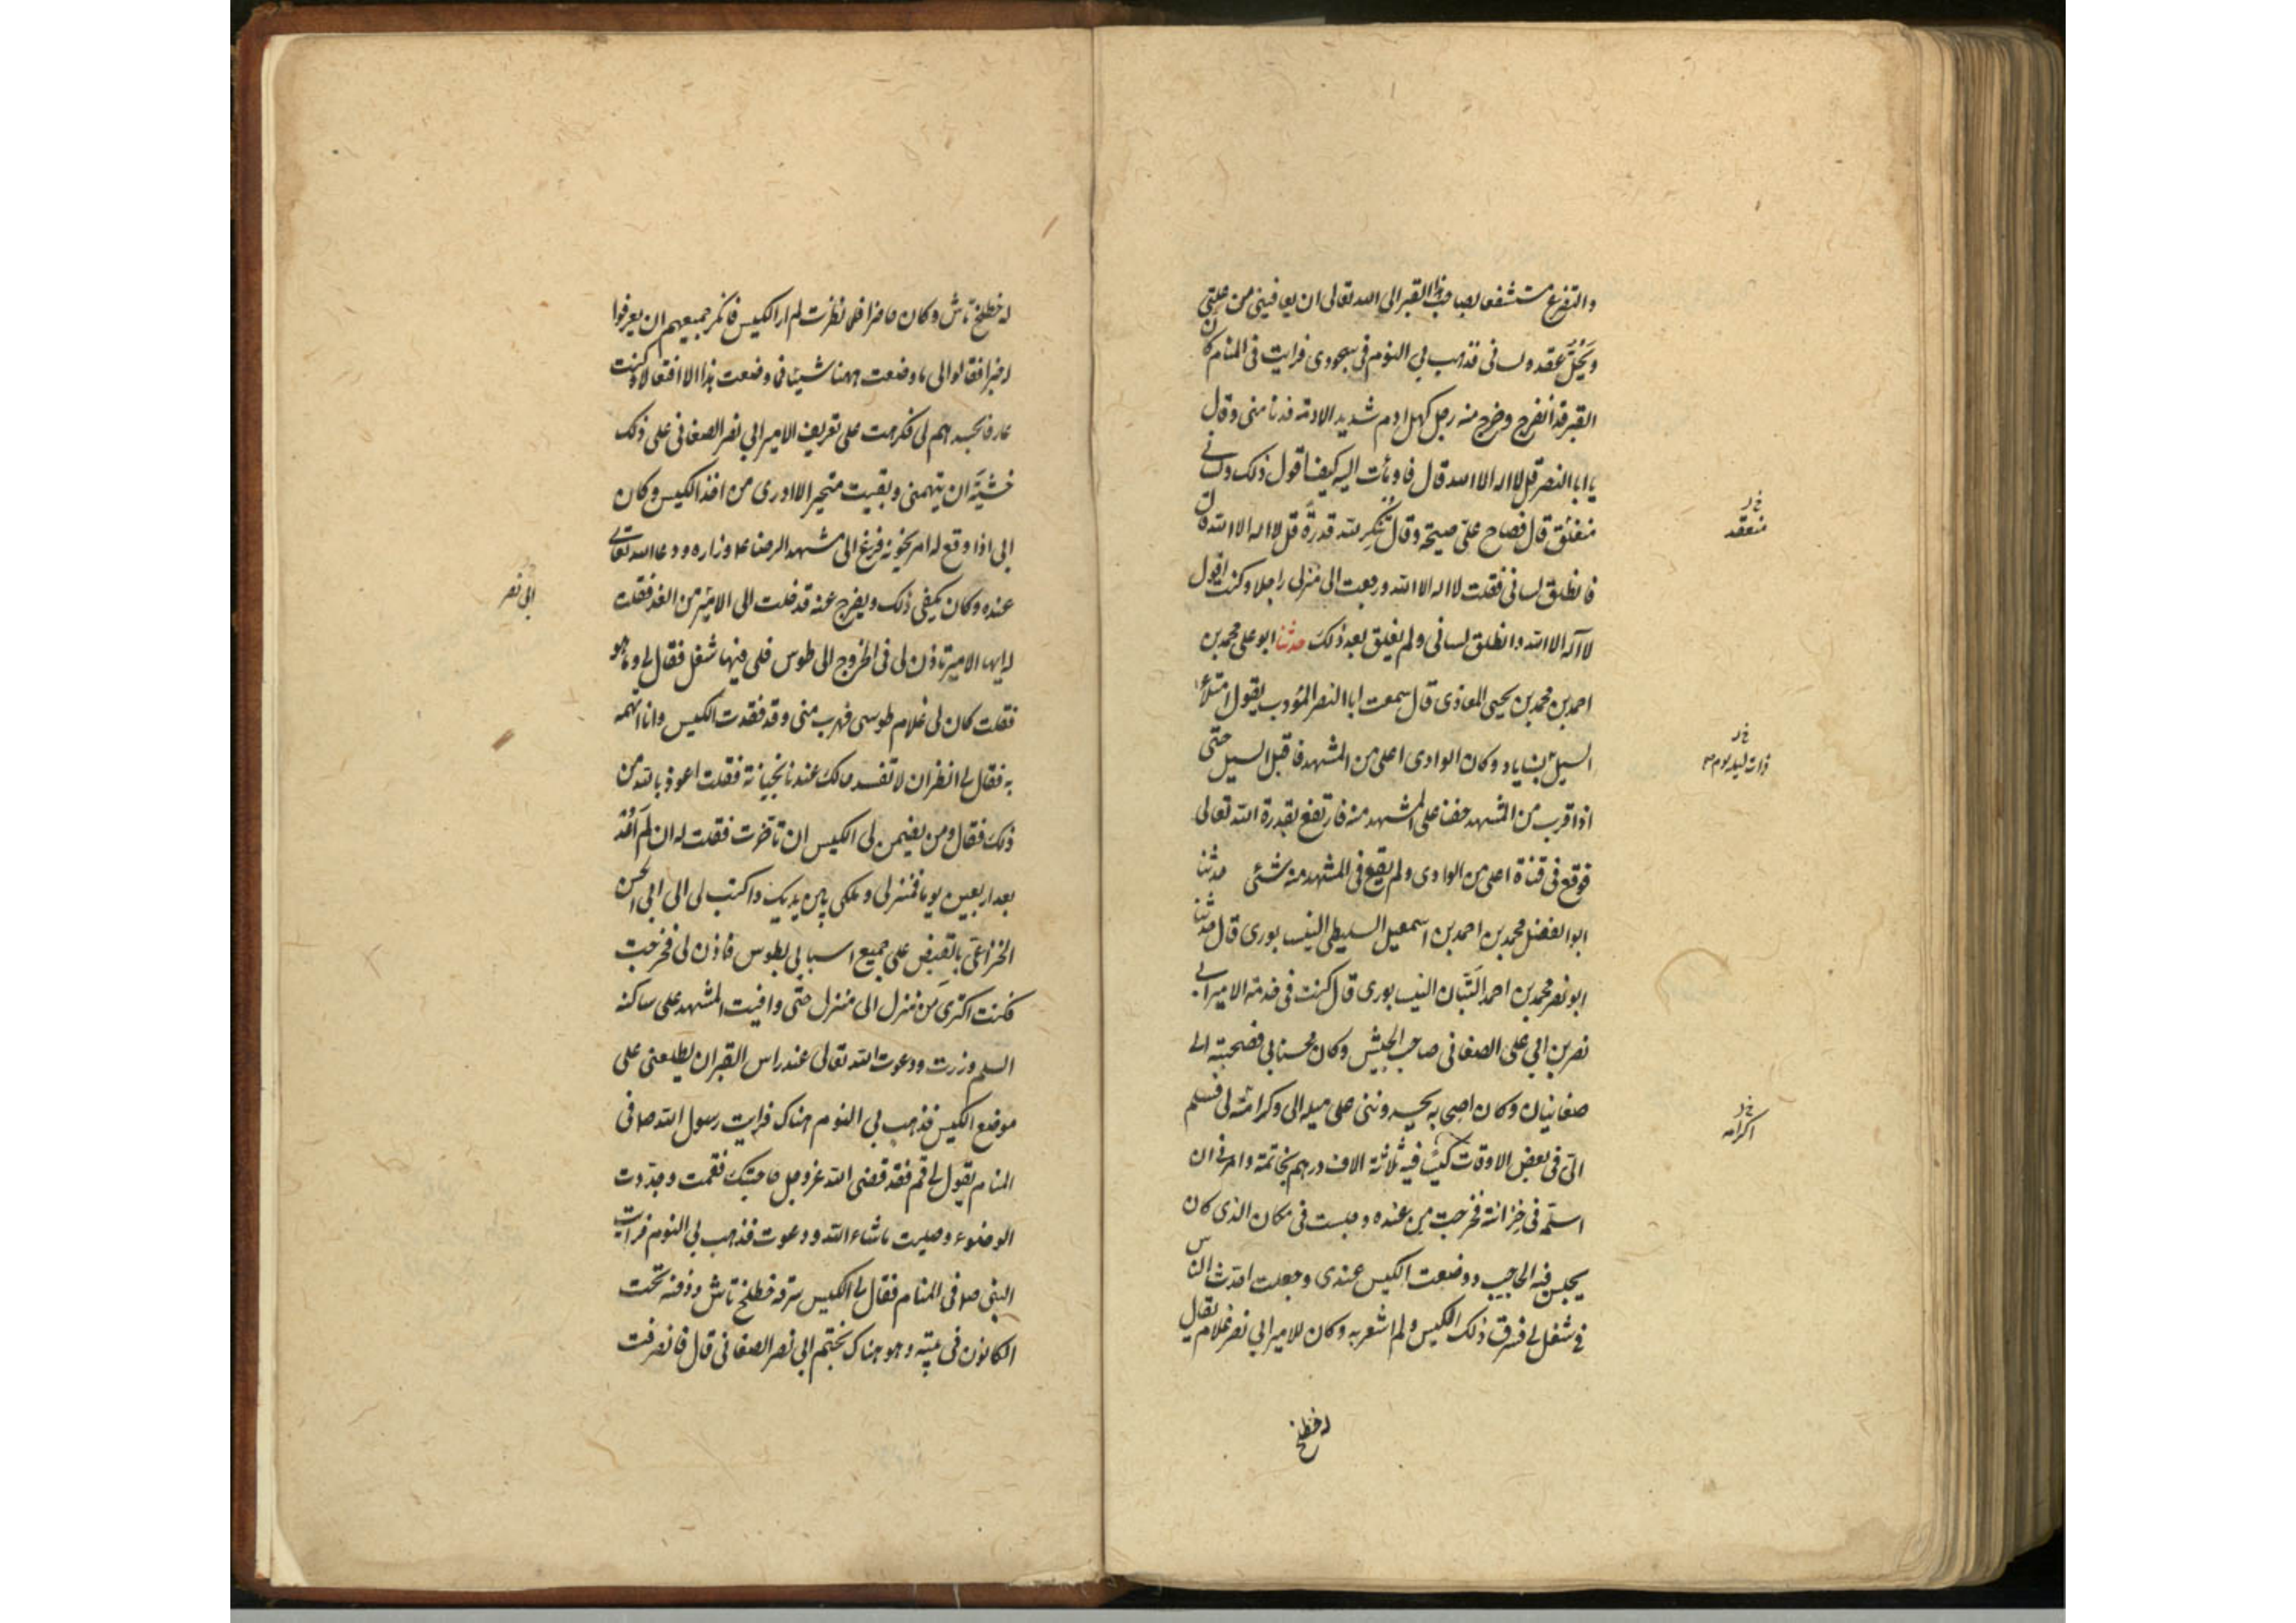 والتضرع مستشفعا بصاحب هذا القبر الى الله تعالى ان يعافينى من علتى
ويحل عقده لسانى فذهب بى النوم فى سجودى فرايت فى المنام كان
القبر قد انفرج وخرج منه رجل كهل ادم شديد الادمة فدنا منى وقال
يا ابا النصر قل لا اله الا الله قال فاومأت اليه كيف اقول ذلك ولسانى
منغلق قال فصاح على صيحة وقال تنكر لله قدرة قل لا اله الا الله قال
فانطلق لسانى فقلت لا اله الا الله ورجعت الى منزلى راجلا وكنت اقول
لا اله الا الله وانطلق لسانى ولم ينغلق بعد ذلك حدثنا ابو على محمد بن
احمد بن محمد بن يحيى المعاذى قال سمعت ابا النصر المؤدب يقول امتلاء
السيل بناياد وكان الوادى اعلى من المشهد فاقبل السيل حتى
اذا قرب من المشهد خفنا على المشهد منه فارتفع بقدرة الله تعالى
فوقع فى قناة اعلى من الوادى ولم يقع فى المشهد منه شئى حدثنا
ابو الفضل محمد بن احمد بن اسمعيل السليطى النيسابورى قال حدثنا
ابو نصر محمد بن احمد التبان النيسابورى قال كنت فى خدمة الامير ابى
نصر بن ابى على الصغانى صاحب الجيش وكان محسنا بى فصحبته الى
صغانيان وكان اصحابه يحسدوننى على ميله الى وكرامته لى فسلم
الى فى بعض الاوقات كيسا فيه ثلاثة الاف درهم بخاتمه وامرنى ان
اسلمه فى خزانته فخرجت من عنده وجلست فى مكان الذى كان
يجلس فيه الحاجب ووضعت الكيس عندى وجعلت احدث الناس
فى شغل لى فسرق ذلك الكيس ولم اشعر به وكان للامير ابى نصر غلام يقال
له خطلخ
خ ر
منعقد
خ ر
ذات ليلة
خ ر
اكرامه
له خطلخ تاش وكان حاضرا فلما نظرت لم ار الكيس فانكر جميعهم ان يعرفوا
له خبرا فقالوا لى ما وضعت ههنا شيئا فما وضعت هذا الا افتعالا وكنت
عارفا بحسدهم لى فكرهت على تعريف الامير ابى نصر الصغانى على ذلك
خشية ان يتهمنى وبقيت متحيرا لا ادرى من اخذ الكيس وكان
ابى اذا وقع له امر يحزنه فزع الى مشهد الرضا ع وزاره ودعا الله تعالى
عنده وكان يكفى ذلك ويفرج عنه فدخلت الى الامير من الغد فقلت
له ايها الامير تاذن لى فى الخروج الى طوس فلى فيها شغل فقال لى وما هو
فقلت كان لى غلام طوسى فهرب منى وقد فقدت الكيس وانا اتهمه
به فقال لى انظر ان لا تفسد حالك عندنا بخيانة فقلت اعوذ بالله من
ذلك فقال ومن يضمن لى الكيس ان تاخرت فقلت له ان لم اعد
بعد اربعين يوما فمنزلى وملكى بين يديك واكتب لى الى ابى الحسن
الخزاعى بالقبض على جميع اسبابى بطوس فاذن لى فخرجت
فكنت اكترى من منزل الى منزل حتى وافيت المشهد على ساكنه
السلم وزرت ودعوت الله تعالى عند راس القبر ان يطلعنى على
موضع الكيس فذهب بى النوم هناك فرايت رسول الله ص فى
المنام يقول لى قم فقد قضى الله عز وجل حاجتك فقمت وجددت
الوضوء وصليت ما شاء الله ودعوت فذهب بى النوم فرايت
النبى ص فى المنام فقال لى الكيس سرقه خطلخ تاش ودفنه تحت
الكانون فى بيته وهو هناك بختم ابى نصر الصغانى قال فانصرفت
ابى نصر